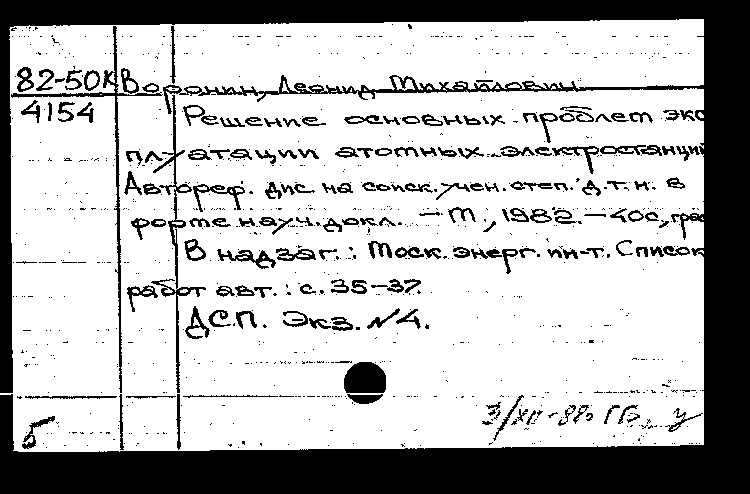 82-50К Воронин, Леонид Михайлович
4154 Решение основных проблем экс
плуатации атомных электростанций
Автореф. дис. на соиск. учен. степ. д.т.н. в
форме науч. докл. – М., 1982. – 40с, граф
В надзаг.: Моск. энерг. ин-т. Список
работ авт.: с. 35–37.
ДСП. Экз. №4.
3/XII-82г ГБ,
5